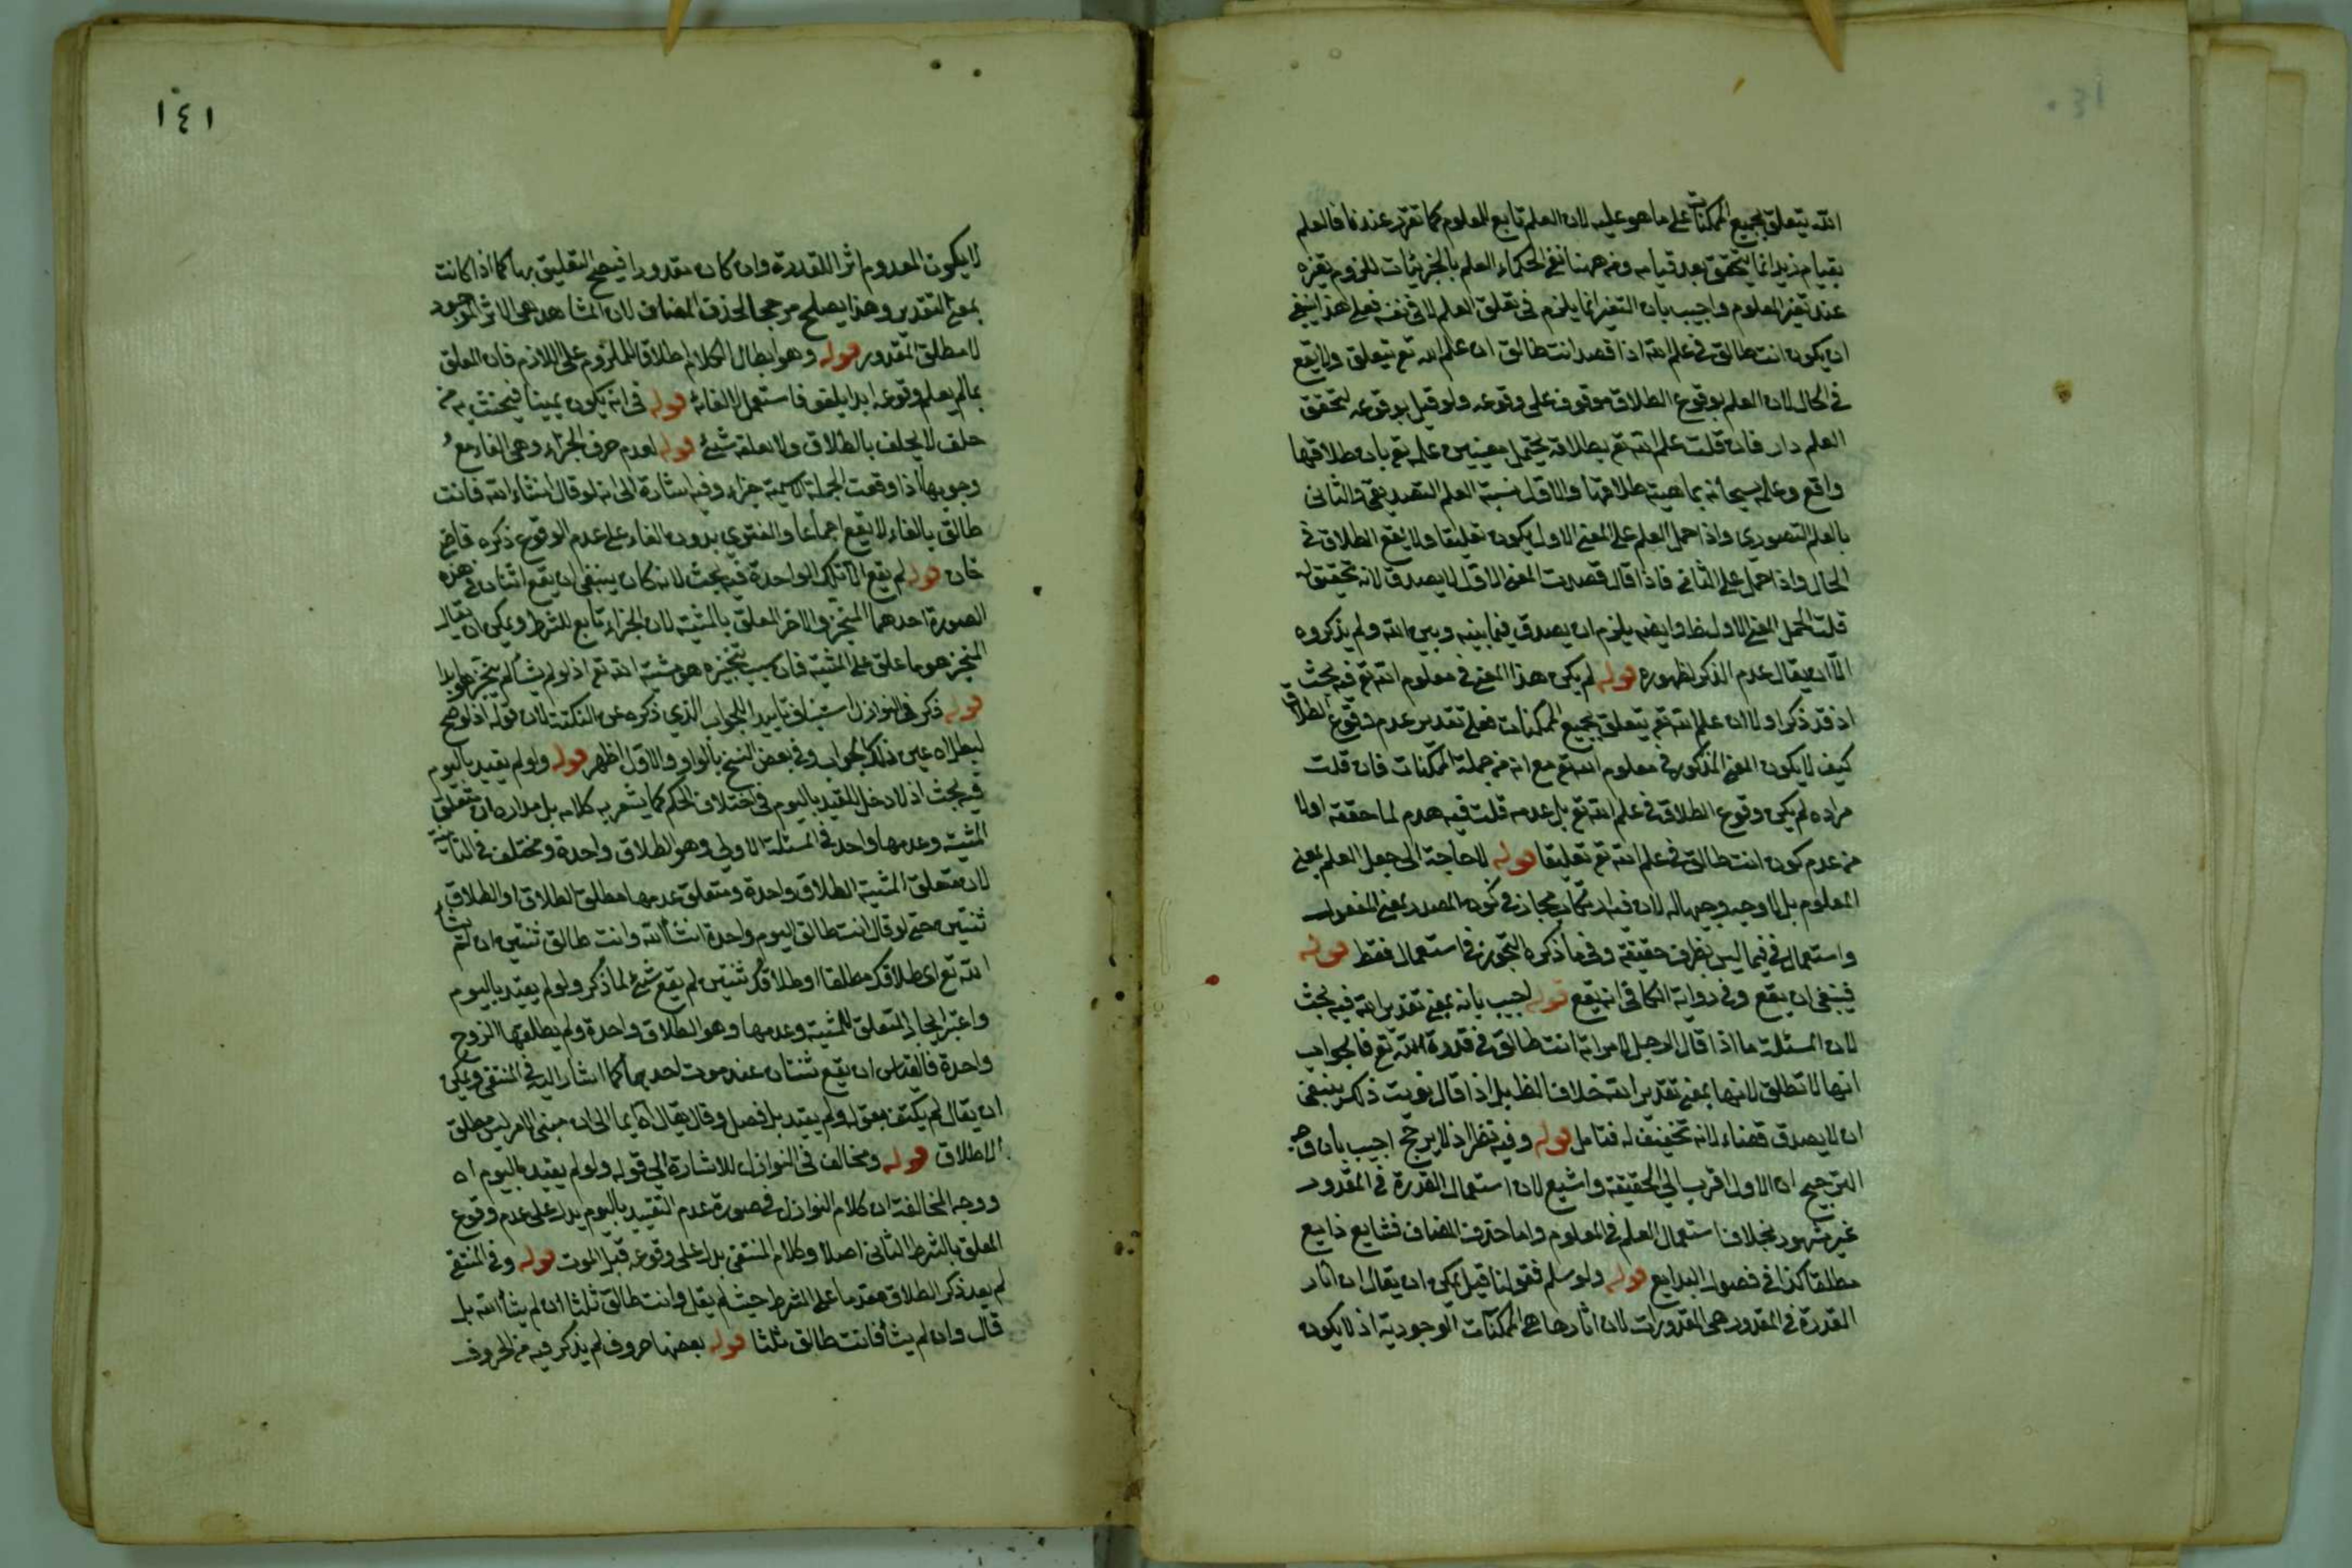 الله يتعلق بجميع الممكنات على ما هو عليه لان العلم تابع للمعلوم كما تقرر عندنا فالعلم
بقيام زيد انما يتحقق بعد قيامه ومن ههنا نفى الحكماء العلم بالجزئيات للزوم تغيره
عند تغير المعلوم واجيب بان التغير انما يلزم في تعلق العلم لا في نفسه فعلى هذا ينبغي
ان يكون انت طالق في علم الله اذا قصد انت طالق ان علم الله تع يتعلق ولا يقع
في الحال لان العلم بوقوع الطلاق موقوف على وقوعه ولو قيل بوقوعه لتحقق
العلم دار فان قلت علم الله تع بطلاقه يحتمل معنيين علمه تع بان طلاقها
واقع وعلمه سبحانه بماهية طلاقها والاول نسبة العلم التصديقي والثاني
بالعلم التصوري واذا حمل العلم على المعنى الاول يكون تعليقا ولا يقع الطلاق في
الحال واذا حمل على الثاني فاذا قال قصدت المعنى الاول لا يصدق لانه تخفيف له
قلت الحمل المعنى الاول ظ وايضه يلزم ان يصدق فيما بينه وبين الله ولم يذكروه
الا ان يقال عدم الذكر لظهوره قوله لم يكن هذا المعنى في معلوم الله تع فيه بحث
اذ قد ذكر اولا ان علم الله تع يتعلق بجميع الممكنات فعلى تقدير عدم وقوع الطلاق
كيف لا يكون المعنى المذكور في معلوم الله تع مع انه من جملة الممكنات فان قلت
مراده لم يكن وقوع الطلاق في علم الله تع بل عدمه قلت فيه هدم لما حققه اولا
من عدم كون انت طالق في علم الله تع تعليقا قوله لا حاجة الى جعل العلم بمعنى
المعلوم بل لا وجه وجيها له لان فيه ارتكاب مجاز في كون المصدر بمعنى المفعول
واستعمال في فيما ليس بظرف حقيقة وفي ما ذكره التجوز في استعمال فقط قوله
فينبغي ان يقع وفي رواية الكافي انه يقع قوله اجيب بانه بمعنى تقدير الله فيه بحث
لان المسئلة ما اذا قال الرجل لامراته انت طالق في قدرة الله تع فالجواب
انها لا تطلق لانها بمعنى تقدير الله خلاف الظ بل اذا قال نويت ذلك ينبغي
ان لا يصدق قضاء لانه تخفيف له فتامل قوله وفيه نظر اذ لا يرجح اجيب بان وجه
الترجيح ان الاول اقرب الى الحقيقة واشيع لان استعمال القدرة في المقدور
غير مشهور بخلاف استعمال العلم في المعلوم واما حذف المضاف فشايع ذايع
مطلقا كذا في فصول البدايع قوله ولو سلم فقولنا قيل يمكن ان يقال ان اثار
القدرة في المقدور هي المقدورات لان اثارها هي الممكنات الوجودية اذ لا يكون
١٤١
لا يكون المعدوم اثر اللقدرة وان كان مقدورا فيصح التعليق بها كما اذا كانت
بمعنى التقدير وهذا يصلح مرجحا لحذف المضاف لان المشاهد هي الاثر الموجود
لا مطلق المقدور قوله وهو ابطال الكلام اطلاقا للملزوم على اللازم فان المعلق
بما لم يعلم وقوعه ابدا يلغو فاستعمل الالغاء قوله في انه يكون يمينا فيحنث به من
حلف لا يحلف بالطلاق ولا نعلقه شئ قوله لعدم حرف الجزاء وهي الفاء مع
وجوبها اذا وقعت الجملة الاسمية جزاء وفيه اشارة الى انه لو قال انشاء الله فانت
طالق بالفاء لا يقع اجماعا والفتوى بدون الفاء على عدم الوقوع ذكره قاضي
خان قوله لم يقع الا تلك الواحدة فيه بحث لانه كان ينبغي ان يقع اثنان في هذه
الصورة احدهما المنجز والاخر المعلق بالمشية لان الجزاء تابع للشرط ويمكن ان يقال
المنجز هو ما علق على المشية فان سبب تنجيزه هو مشية الله تع اذ لو لم يشأ لم ينجز هو ابدا
قوله ذكر في النوازل استيناف تاييدا للجواب الذي ذكره من النكتة لان قوله اذ لو صح
لبطل اه عين ذلك الجواب وفي بعض النسخ بالواو والاول اظهر قوله ولو لم يقيد باليوم
فيه بحث اذ لا دخل للقيد باليوم في اختلاف الحكم كما يشعر به كلامه بل مداره ان متعلق
المشية وعدمها واحد في المسئلة الاولى وهو الطلاق واحدة ومختلف في الثانية
لان متعلق المشية الطلاق واحدة ومتعلق عدمها مطلق الطلاق او الطلاق
ثنتين حتى لو قال انت طالق اليوم واحدة انشأ الله وانت طالق ثنتين ان لم يشأ
الله تع اي طلاقك مطلقا او طلاقك ثنتين لم يقع شئ لما ذكر ولو لم يقيد باليوم
واعتبر ايجاد المتعلق للمشية وعدمها وهو الطلاق واحدة ولم يطلقها الزوج
واحدة فالقياس ان يقع ثنتان عند موت احدهما كما اشار اليه في المنتقى ويمكن
ان يقال لم يكتف بقوله ولم يقيد بل فصل وقال يقال اه ايما الى ان مبنى الامر ليس مطلق
الاطلاق قوله ومخالف في النوازل للاشارة الى قوله ولو لم يقيد باليوم اه
ووجه المخالفة ان كلام النوازل في صورة عدم التقييد باليوم يدل على عدم وقوع
المعلق بالشرط الثاني اصلا وكلام المنتقى يدل على وقوعه قبل الموت قوله وفي المنتقى
لم يعد ذكر الطلاق مقدما على الشرط حيث لم يقل وانت طالق ثلثا ان لم يشأ الله بل
قال وان لم يشأ فانت طالق ثلثا قوله بعضها حروف لم يذكر فيه من الحروف